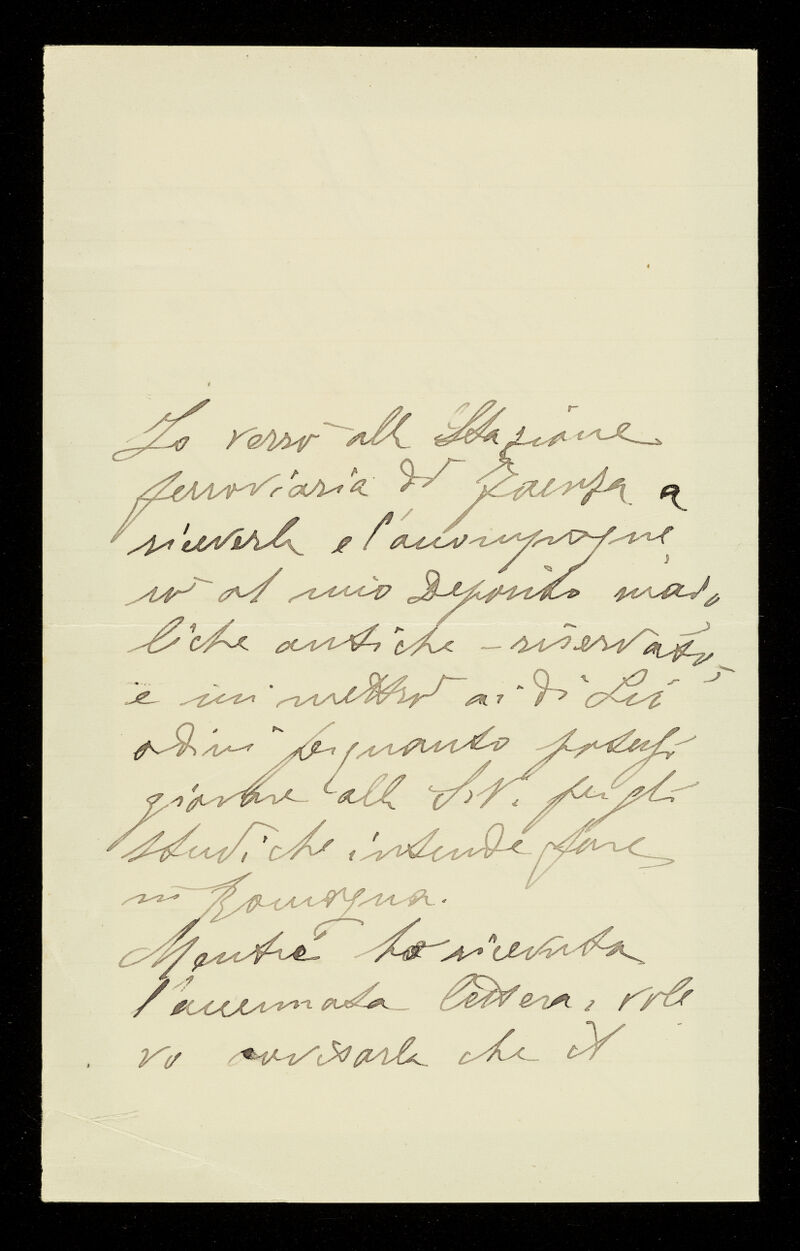 Io verrò alla Stazione
ferroviaria di Faenza a
riceverla e l'accompagne
rò al mio Deposito maio
liche antiche – riservato,
e mi metterò ai di Lei
ordini per quanto potessi
giovare alla S.V. per gli
studi che intende fare
in Romagna.
Mentre ho ricevuta
l'accennata lettera, vole
vo avvisarla che il